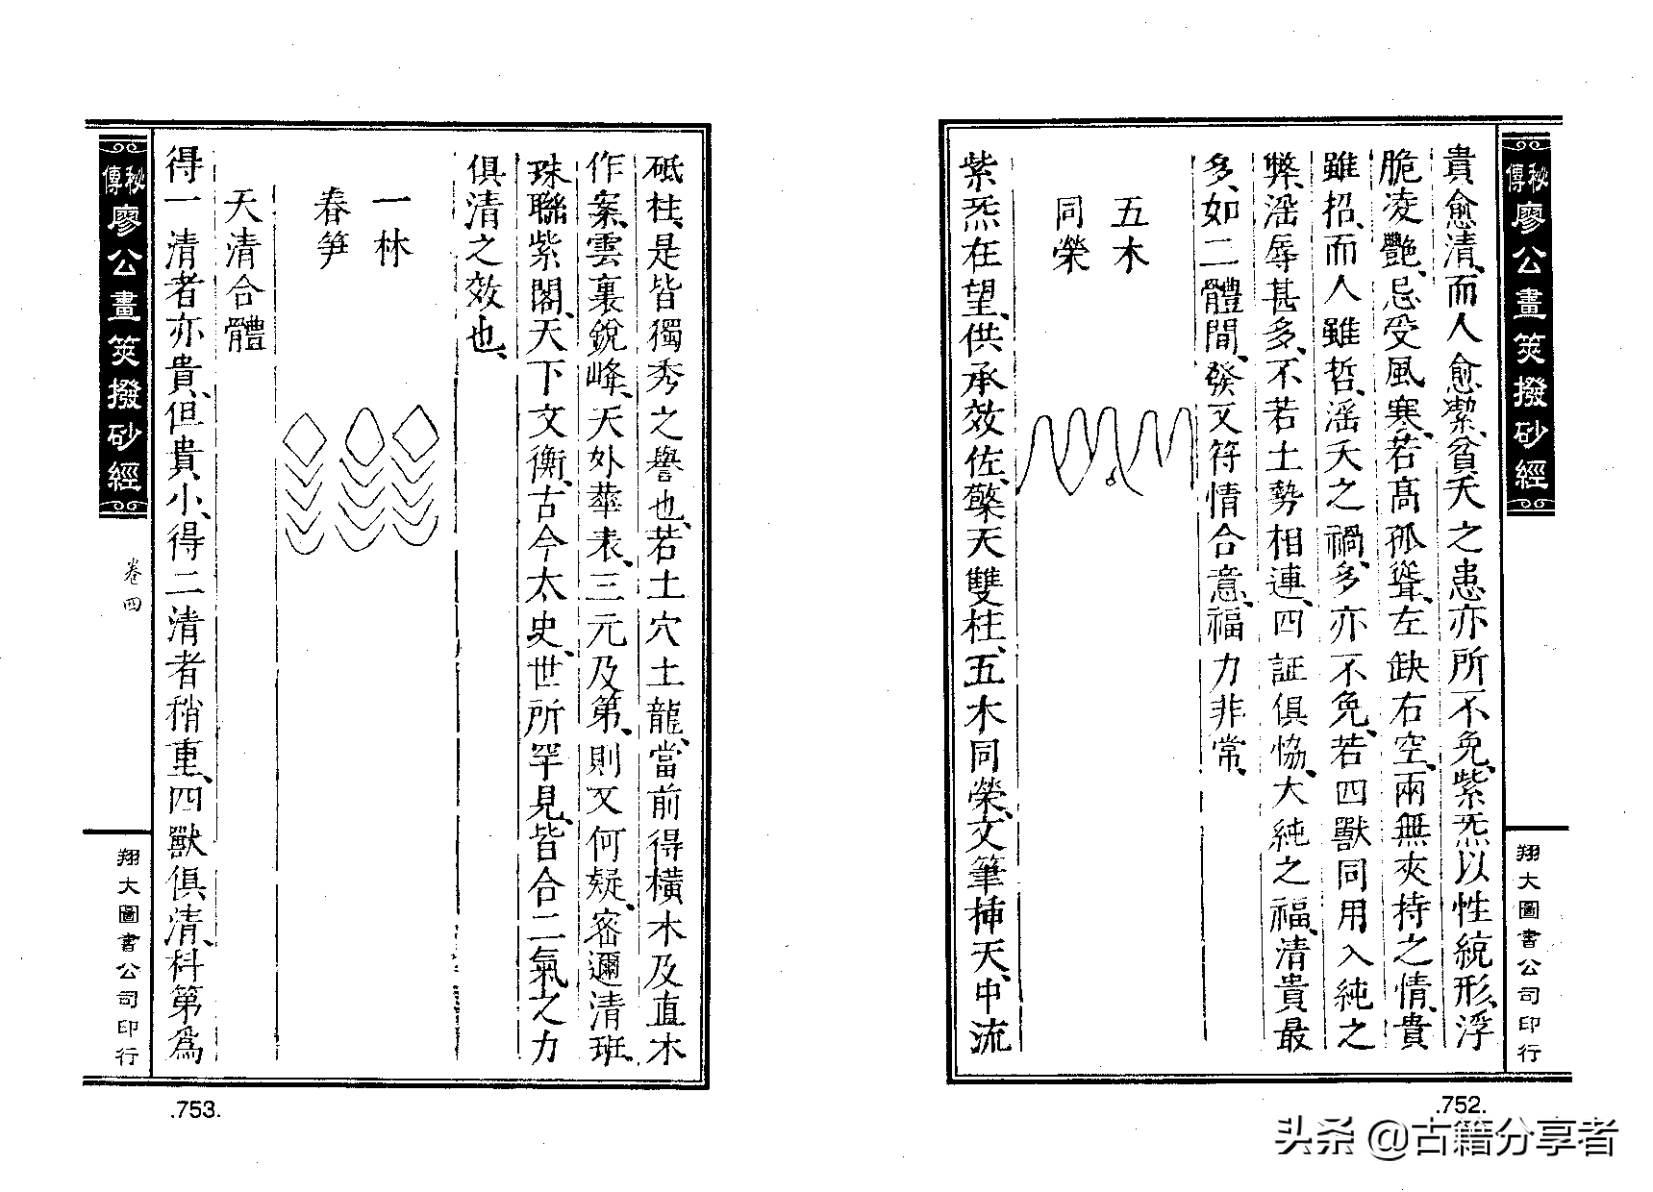 秘傳廖公畫筴撥砂經
翔大圖書公司印行
貴愈清、而人愈潔、貧夭之患、亦所不免、紫炁以性統形、浮
脆凌艷、忌受風寒、若高孤聳、左缺右空、兩無夾持之情、貴
雖招、而人雖哲、滛夭之禍、多亦不免、若四獸同用入純之
弊、滛辱甚多、不若土勢相連、四証俱恊、大純之福、清貴最
多、如二體間、發文符情合意、福力非常、
五木
同榮
紫炁在望、供承效佐、擎天雙柱、五木同榮、文筆挿天、中流
.752.
砥柱、是皆獨秀之譽也、若土穴土龍、當前得橫木及直木
作案、雲裏銳峰、天外華表、三元及第、則又何疑、密邇清班、
珠聯紫閣、天下文衡、古今太史、世所罕見、皆合二氣之力
俱清之效也、
一林
春笋
天清合體
得一清者亦貴、但貴小、得二清者稍重、四獸俱清、科第爲
秘傳廖公畫筴撥砂經
卷四
翔大圖書公司印行
.753.
头条 @古籍分享者